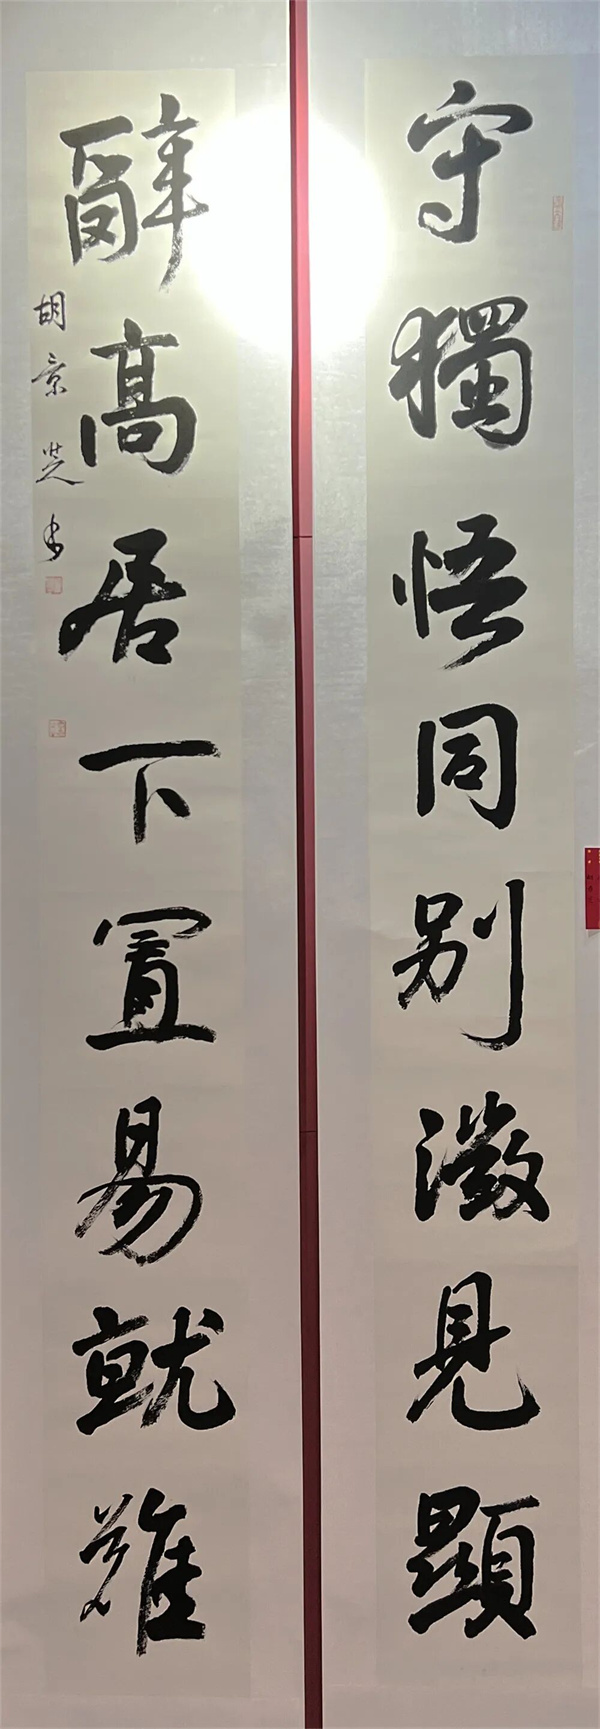 守獨悟同別微見顯
辭高居下置易就難
胡景芝书